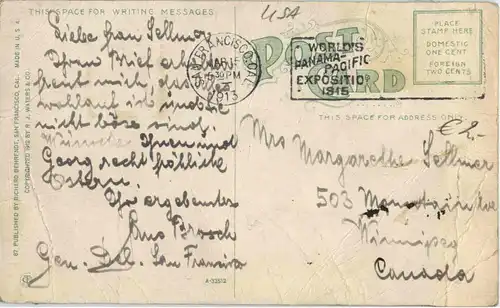 THIS SPACE FOR WRITING MESSAGES
USA
POST CARD
SAN FRANCISCO, CAL.
1913
WORLD'S
PANAMA-PACIFIC
EXPOSITION
1915
PLACE
STAMP HERE
DOMESTIC
ONE CENT
FOREIGN
TWO CENTS
THIS SPACE FOR ADDRESS ONLY
€ 2,-
Liebe Frau Sellmer
Ihren Brief erhalten
freut mich, das
wohlauf ist und
nicht böse sind.
Wünsche Ihnen und
Georg recht fröhliche
Ostern.
Ihr ergebenster
Gen. Del. San Francisco
Mrs Margarethe Sellmer
503
Winnipeg
Canada
67 PUBLISHED BY RICHARD BEHRENDT, SAN FRANCISCO, CAL. MADE IN U.S.A.
COPYRIGHTED 1912 BY R. J. WATERS & CO.
A-32512